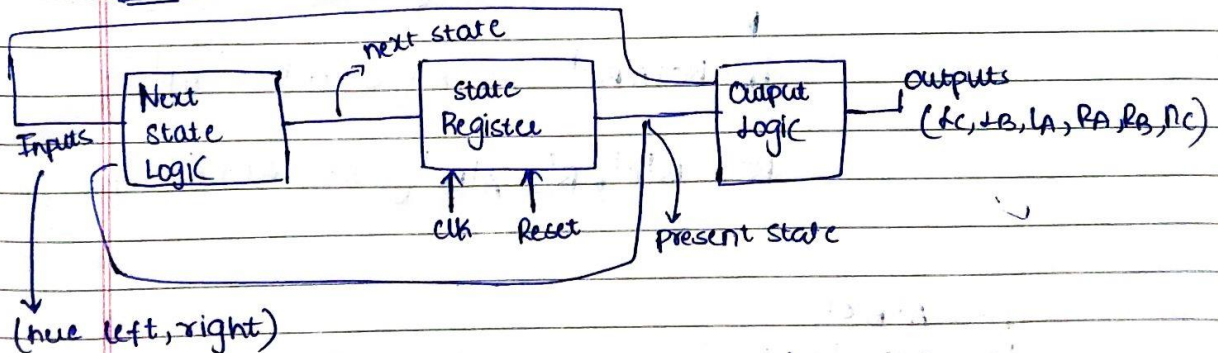 next state
Next
State
Logic
State
Register
Output
Logic
outputs
(LC, LB, LA, RA, RB, RC)
Inputs
Clk Reset
present state
(left, right)